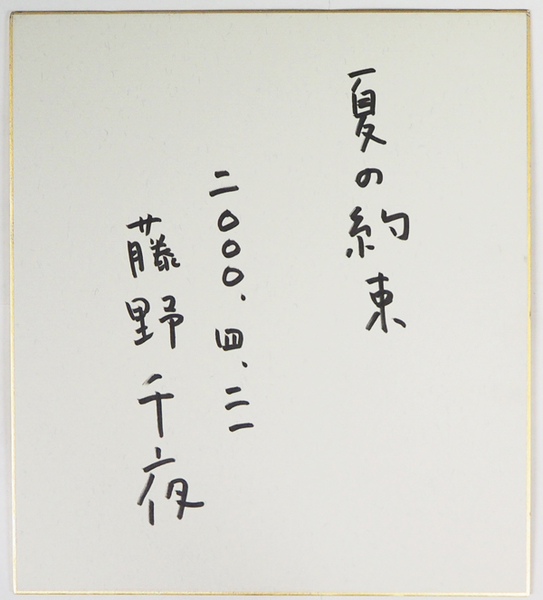 夏の約束
二〇〇〇、四、二一
藤野千夜